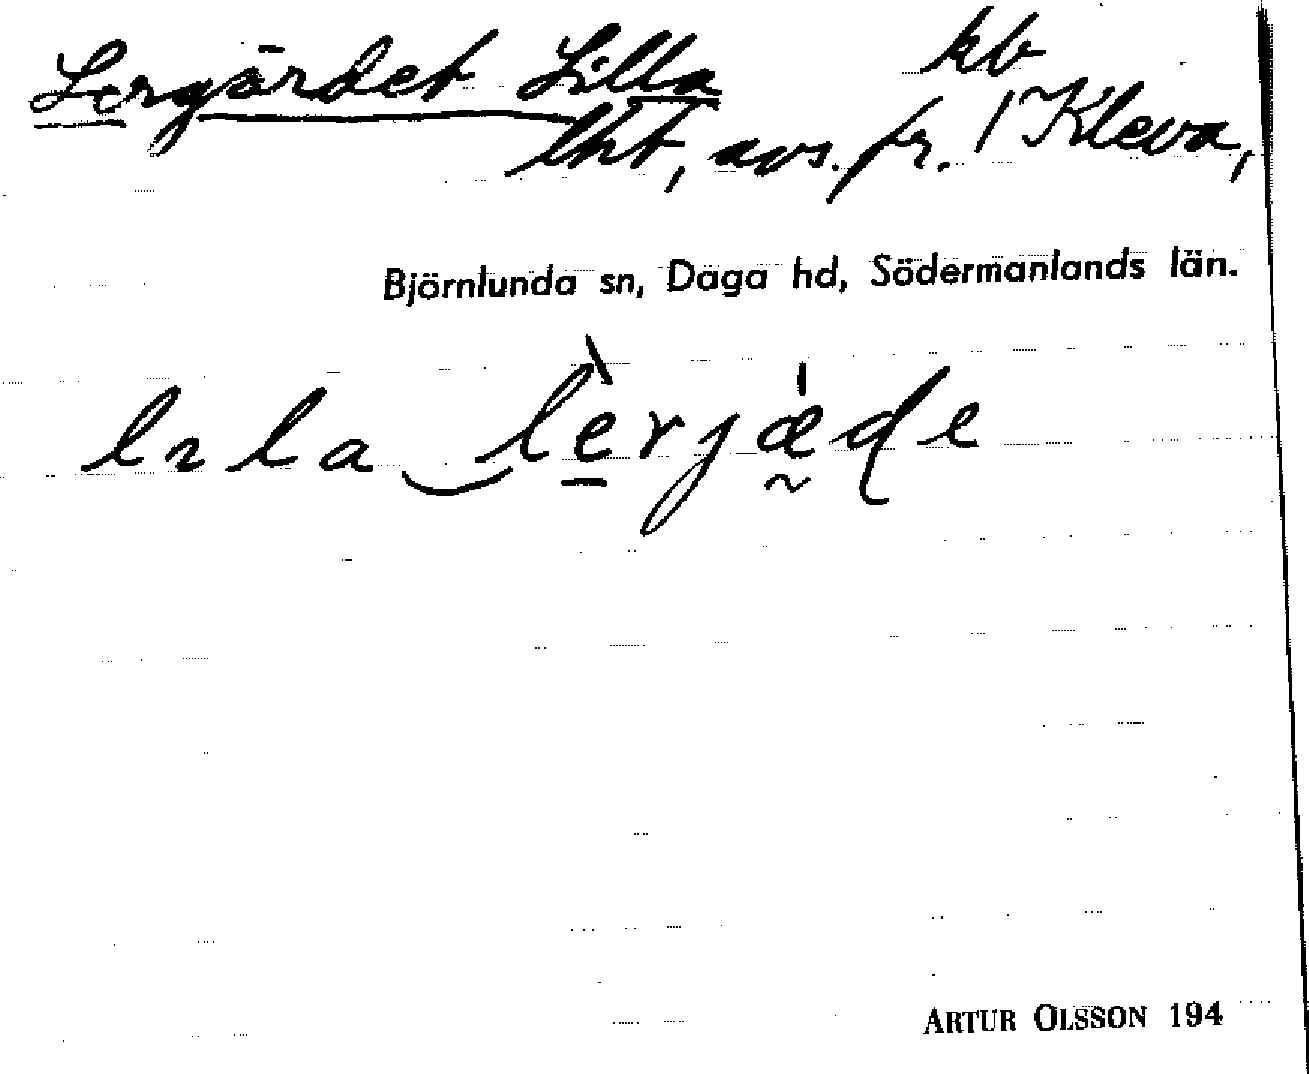 Lergärdet Lilla kb
lht, avs. fr. / Kleva,
Björnlunda sn, Daga hd, Södermanlands län.
lɩla lèrjæde
ARTUR OLSSON 194